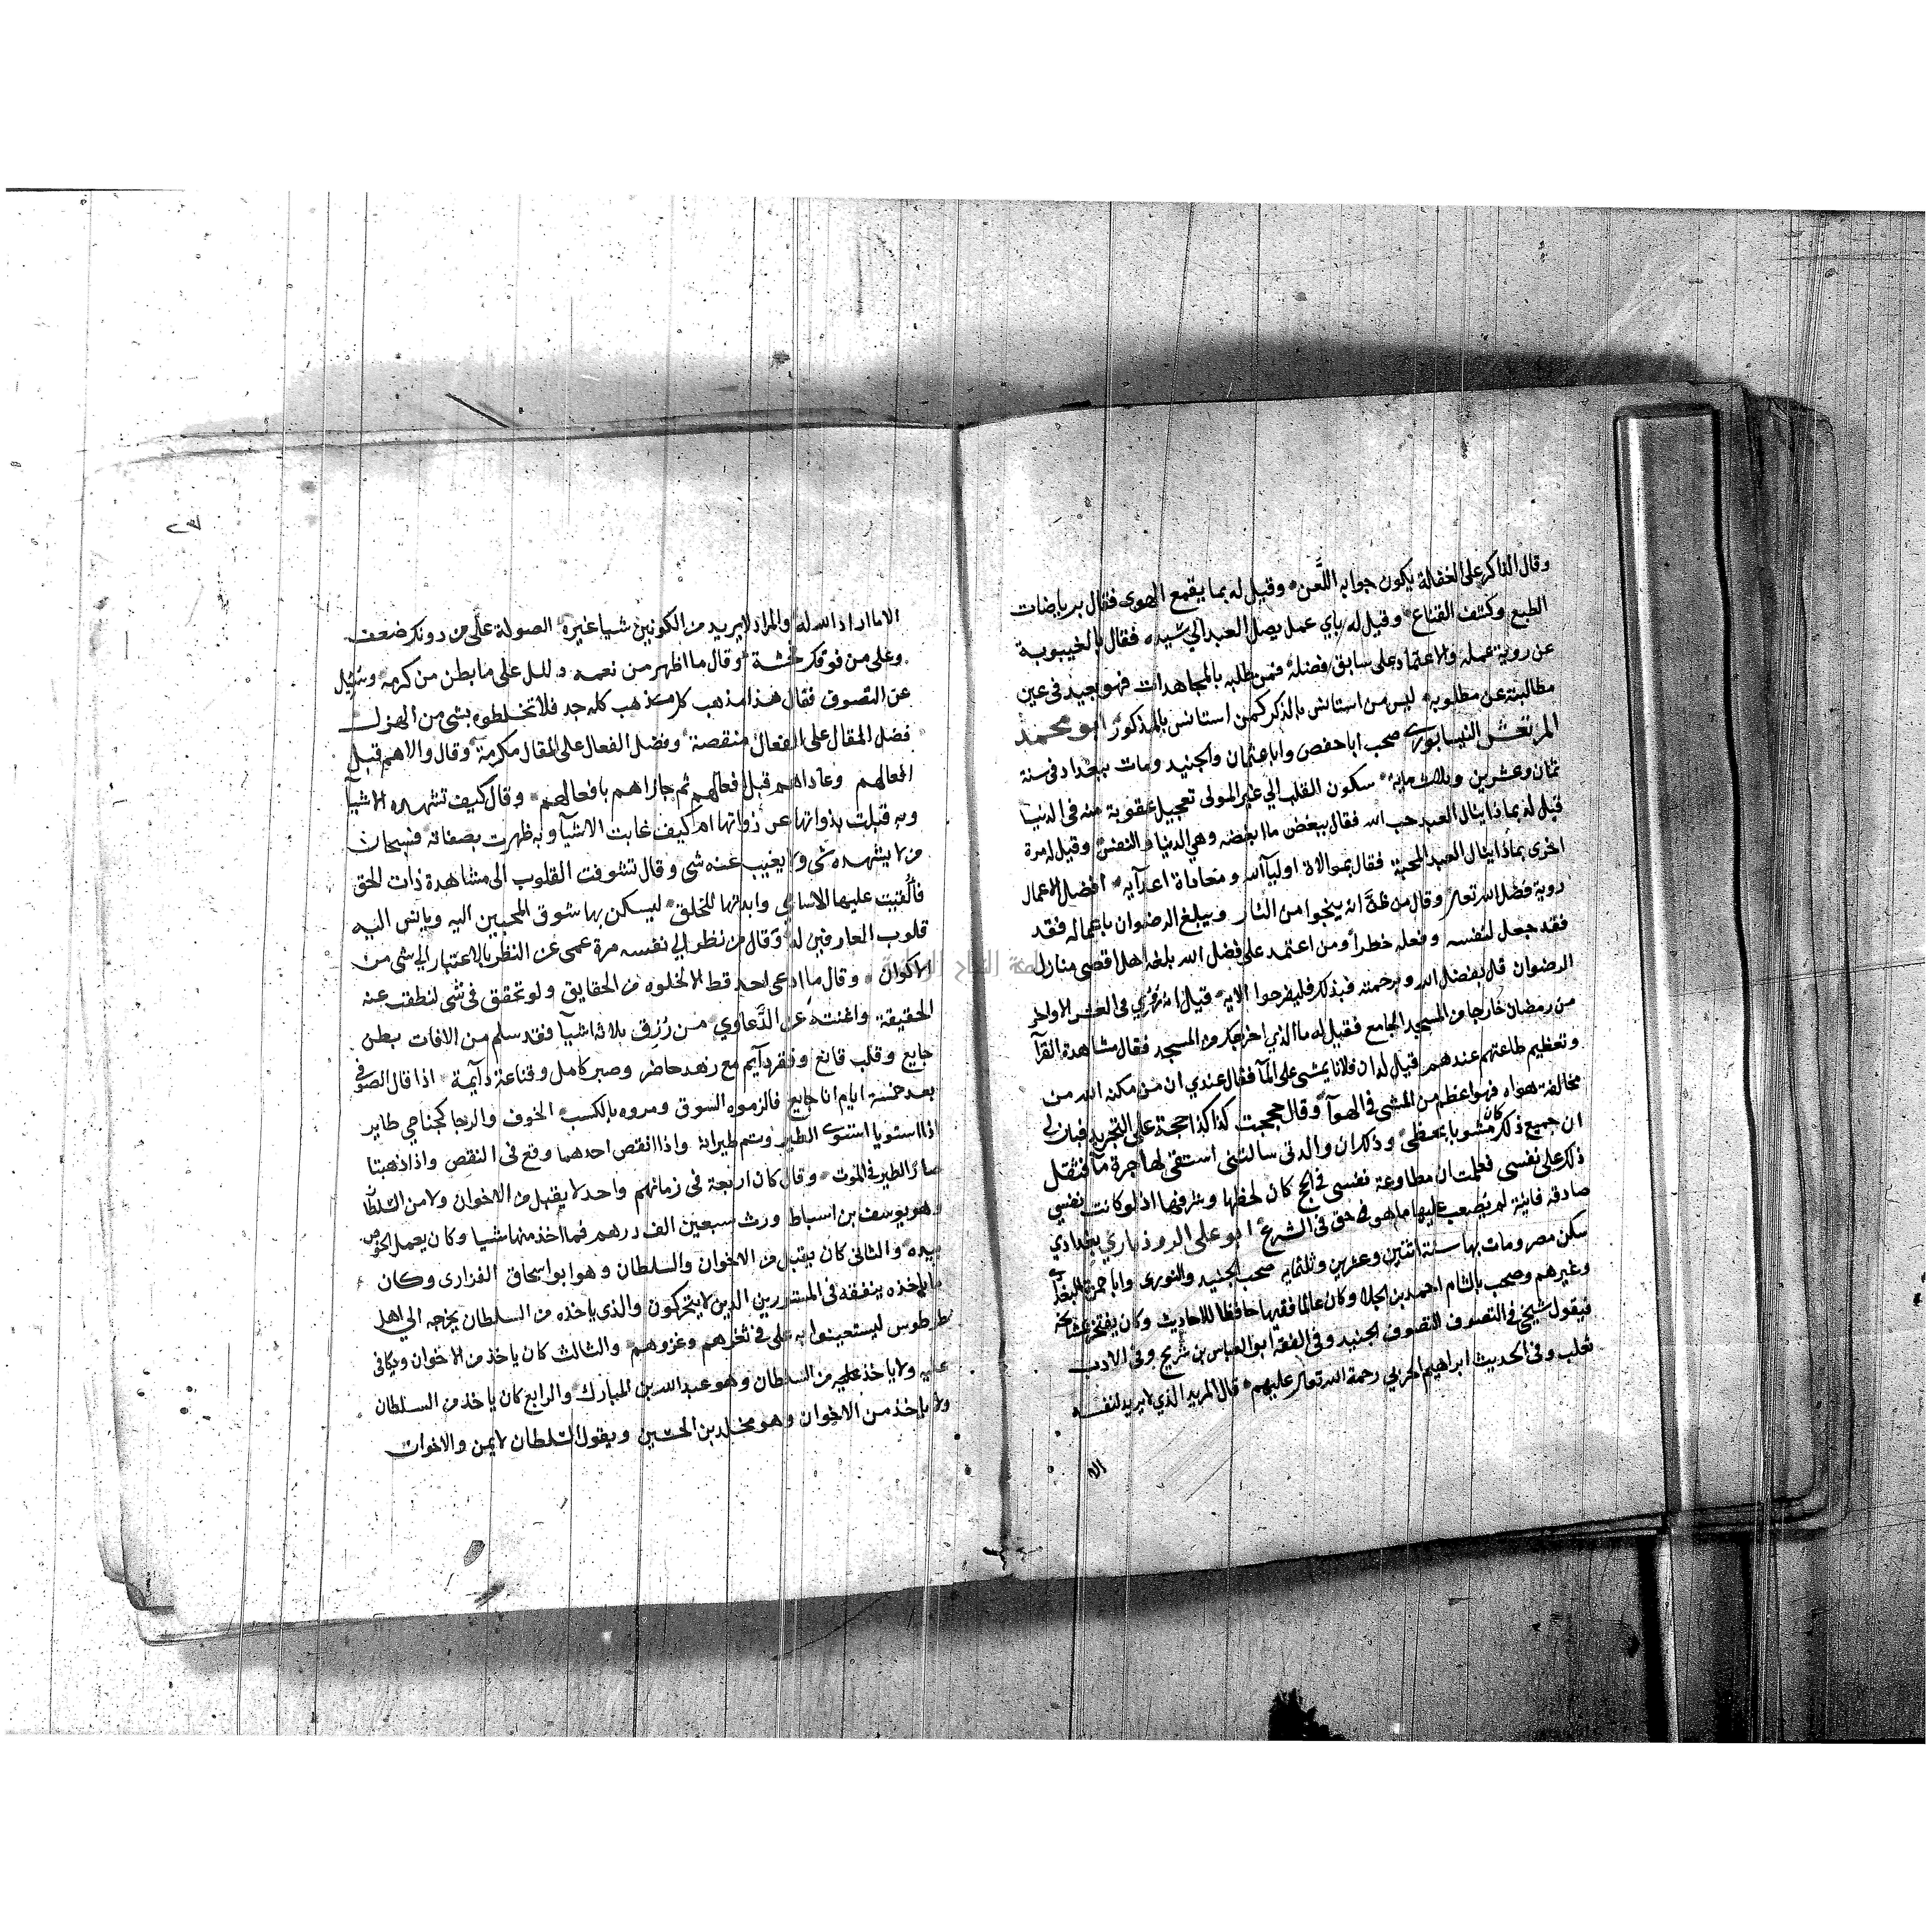 وقال الذاكر على الغفلة يكون جوابه اللعن وقيل له بما يقمع الهوى فقال برياضات
الطبع وكشف القناع وقيل له باي عمل يصل العبد الي سيده فقال بالخيبوبة
عن روية عمله والاعتماد على سابق فضله فمن طلبه بالمجاهدات فهو بعيد في عين
مطالبته عن مطلوبه ليس من استانس بالذكر كمن استانس بالمذكور ابو محمد
المرتعش النيسابوري صحب ابا حفص وابا عثمان والجنيد ومات ببغداد في سنة
ثمان وعشرين وثلاث ماية سكون القلب الي غير المولى تعجيل عقوبة منه في الدنيا
قيل له بماذا ينال العبد حب الله فقال ببغض ما ابغضه وهي الدنيا والنفس وقيل له مرة
اخرى بماذا ينال العبد المحبة فقال بموالاة اوليآ الله ومعاداة اعدآيه افضل الاعمال
روية فضل الله تعالى وقال من ظن انه ينجوا من النار ويبلغ الرضوان باعماله فقد
فقد جعل لنفسه وفعله خطرا ومن اعتمد على فضل الله بلغه اقصى منازل
الرضوان قل بفضل الله وبرحمته فبذلك فليفرحوا الاية قيل انه في العشر الاواخر
من رمضان خارجا من المسجد الجامع فقيل له ما الذي اخرجك من المسجد فقال مشاهدة القرآ
وتعظيم طاعتهم عندهم قيل له ان فلانا يمشى على المآ فقال عندي ان من مكنه الله من
مخالفة هواه فهو اعظم من المشى في الهوآ وقال حججت كذا كذا حجة على التجريد فبان لي
ان جميع ذلك كان مشوبا بحظى وذلك ان والدتى سالتنى استقى لها جرة مآ فثقل
ذلك على نفسى فعلمت ان مطاوعة نفسى في الحج كان لحظها وشرفها اذ لو كانت نفسي
صادقه فانية لم يصعب عليها ما هو حق في الشرع ابو على الروذباري بغدادي
سكن مصر ومات بها سنة اثنين وعشرين وثلثمايه صحب الجنيد والنورى وابا حمزة البغدا
وغيرهم وصحب بالشام احمد بن الجلا وكان عالما فقيها حافظا للاحاديث وكان يفتخر بمشايخه
فيقول شيخى في التصوف الجنيد وفى الفقه ابو العباس بن شريح وفى الادب
ثعلب وفى الحديث ابراهيم الحربي رحمة الله تعالى عليهم قال المريد الذي لا يريد لنفسه
الا
الا ما اراد الله له والمراد لا يريد من الكونين شيا غيره الصولة على من دونك ضعف
وعلى من فوقك قال ما اظهر من نعمه دليل على ما بطن من كرمه وسئل
عن التصوف فقال هذا مذهب كله جد فلا تخلطوه بشى من الهزل
فضل المقال على الفعال منقصة وفضل الفعال على المقال مكرمة وقال والاهم قبل
افعالهم وعاداهم قبل افعالهم ثم جازاهم بافعالهم وقال كيف تشهده الاشيآ
وبه فنيت بذواتها عن ذواتها ام كيف غابت الاشيآ وبه ظهرت بصفاته فسبحان
من لا يشهده شى ولا يغيب عنه شى وقال تشوفت القلوب الى مشاهدة ذات الحق
فألقيت عليها الاسامي وابدتها للخلق ليسكن بها شوق المحبين اليه ويانس اليه
قلوب العارفين له وقال من نظر الي نفسه مرة عمى عن النظر بالاعتبار الي شى من
الاكوان وقال ما ادعى احد قط الا لخلوه من الحقايق ولو تحقق في شى لنطقت عنه
الحقيقة واغنته عن الدعاوي من رزق بلاثة اشيآ فقد سلم من الافات بطن
جايع وقلب قانع وفقر دآيم مع زهد حاضر وصبر كامل وقناعة دآيمة اذا قال الصوفى
بعد خمسة ايام انا جايع فالزموه السوق ومروه بالكسب الخوف والرجا كجناحي طاير
اذا استويا استوى الطير وتم طيرانه واذا انقص احدهما وقع فى النقص واذا ذهبتا
صار الطير في الموت وقال كان اربعة في زمانهم واحد لا يقبل من الاخوان ولا من السلطآ
وهو يوسف بن اسباط ورث سبعين الف درهم فما اخذ منها شيا وكان يعمل الخوص
بيده والثانى كان يقبل من الاخوان والسلطان وهو ابو اسحاق الفزارى وكان
ما ياخذه ينفقه فى المستورين الذين لا يتحركون والذي ياخذه من السلطان يخرجه الي اهل
طرطوس ليستعينوا به على ثغرهم وغزوهم والثالث كان ياخذ من الاخوان ويكافى
عليه ولا ياخذ من السلطان وهو عبد الله بن المبارك والرابع كان ياخذ من السلطان
ولا ياخذ من الاخوان وهو مخلد بن الحسين ويقول السلطان لا يمن والاخوان